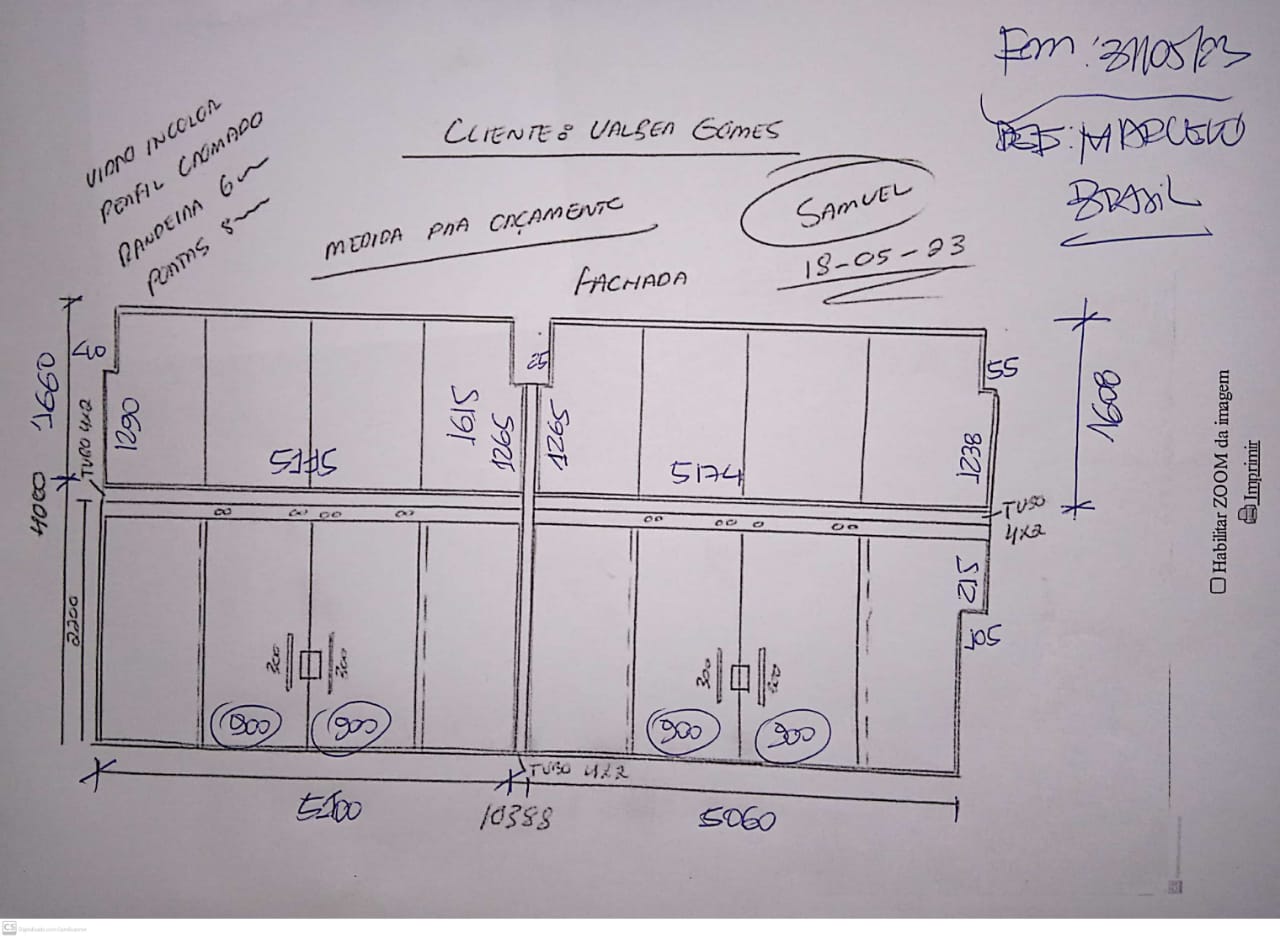 Em: 31/05/23
REF: MARCELO
BRASIL
CLIENTE: VALBER GOMES
VIDRO INCOLOR
PERFIL CROMADO
BANDEIRA 6
PORTAS 8
MEDIDA PRA ORÇAMENTO
SAMUEL
18-05-23
FACHADA
25
55
1660
1290
1615
1265
1265
1238
1608
TUBO 4X2
5174
4000
TUBO
4X2
215
105
2200
300
300
300
900
900
900
900
TUBO 4X2
10388
5060
Habilitar ZOOM da imagem
Imprimir
CS
Digitalizado com CamScanner